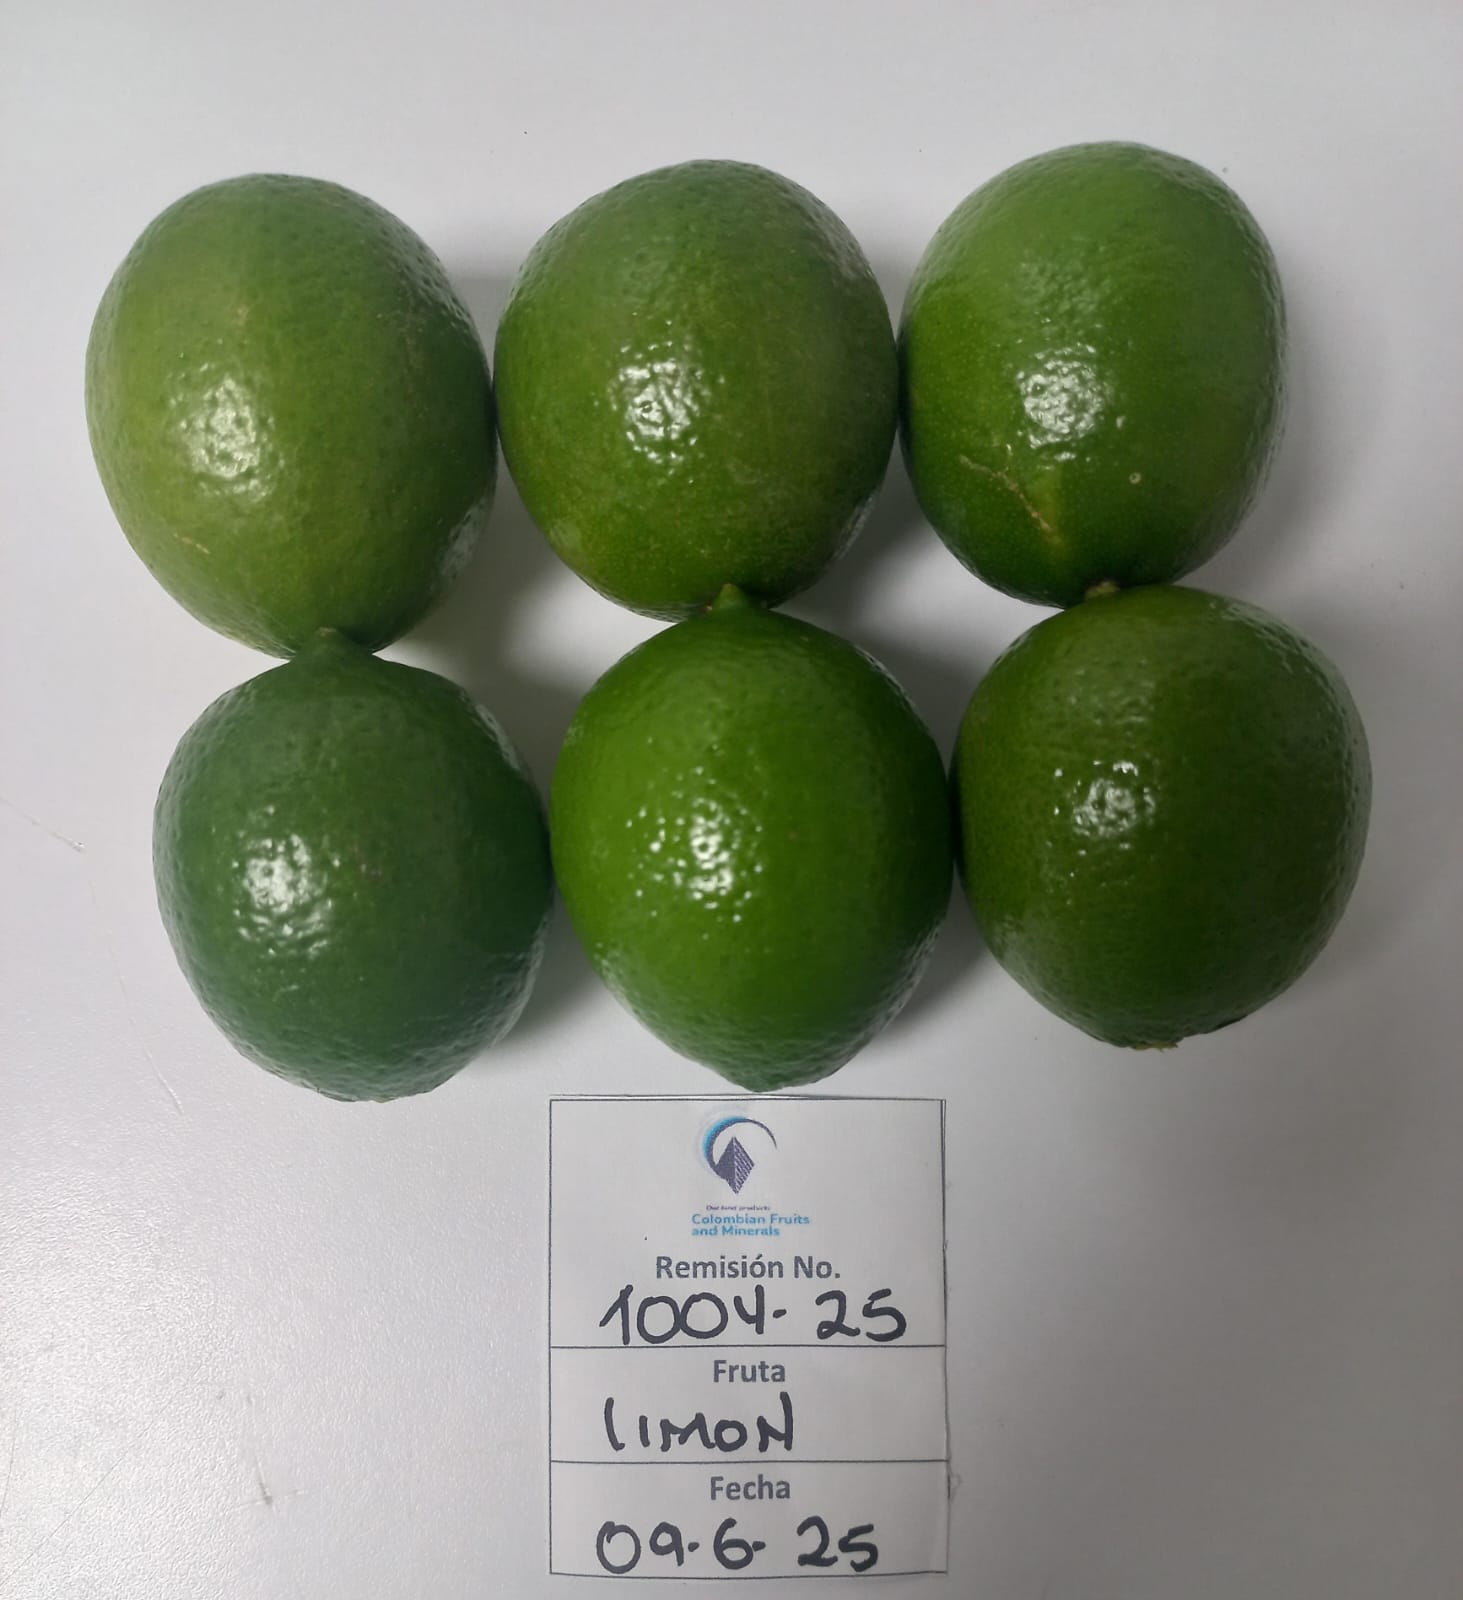 Our best products
Colombian Fruits
and Minerals
Remisión No.
1004-25
Fruta
LIMON
Fecha
09-6-25